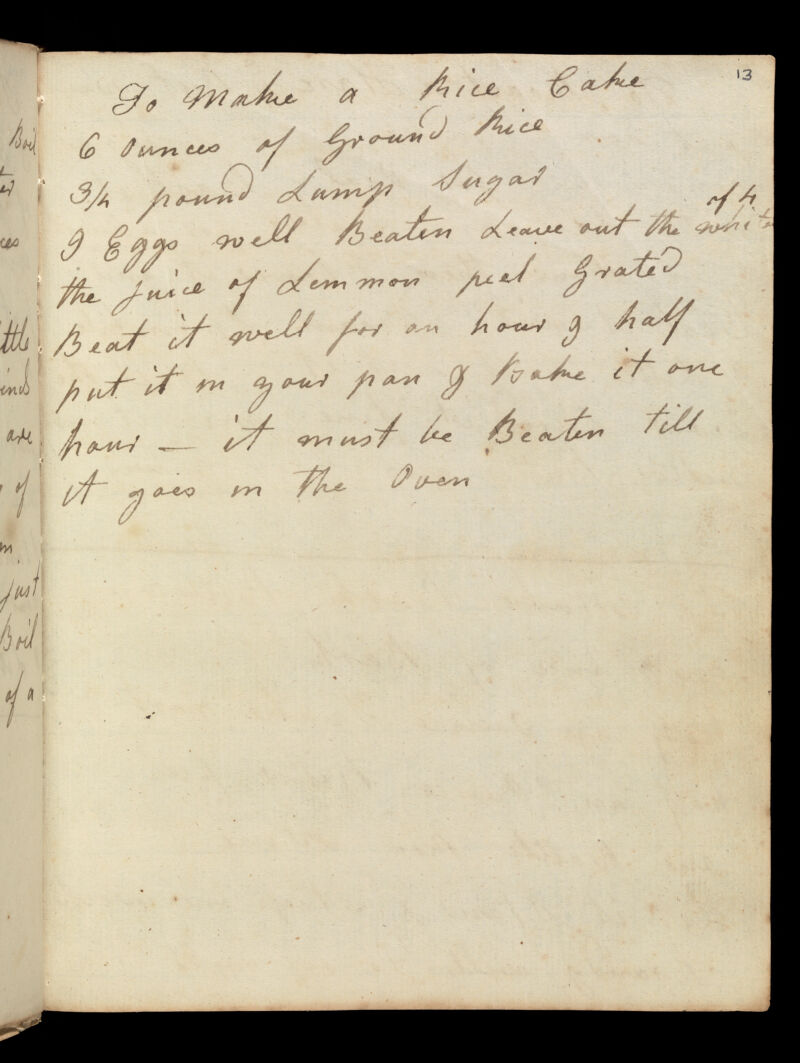 13
To Make a Rice Cake
6 ounces of Ground Rice
3/4 pound Lump Sugar
of 4
9 Eggs well Beaten Leave out the white
the juice of Lemmon peel Grated
Beat it well for an hour & half
put it in your pan & Bake it one
hour — it must be Beaten till
it goes in the Oven
Boil
ttle
are
of
just
Boil
of a